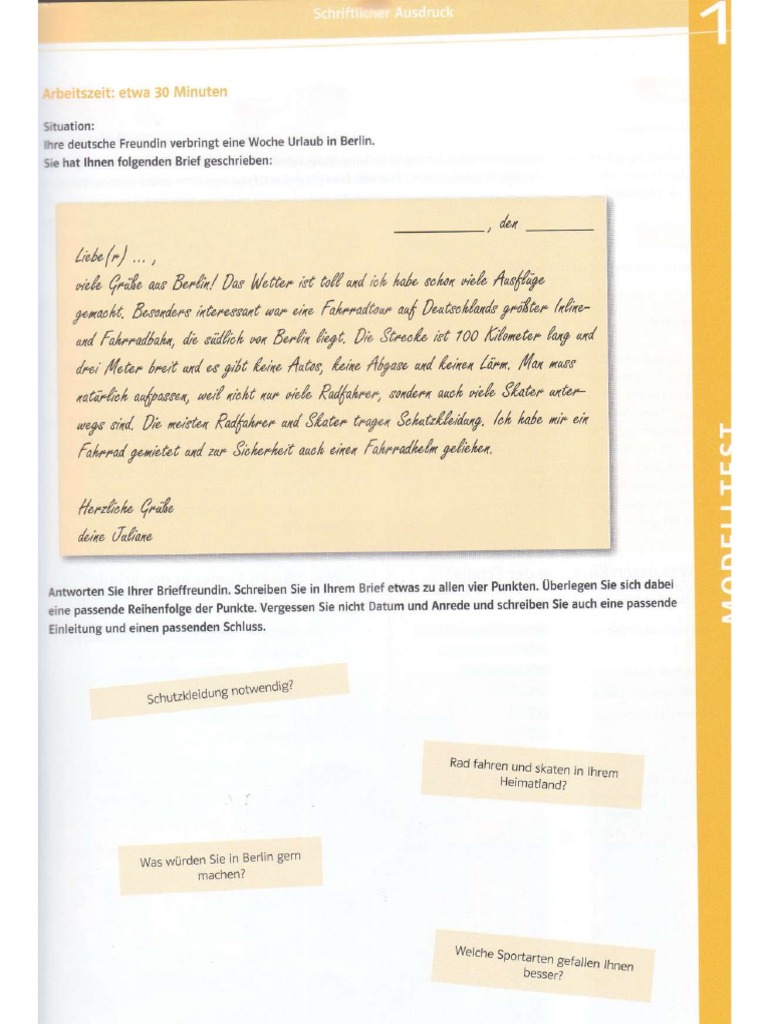 Schriftlicher Ausdruck
1
Arbeitszeit: etwa 30 Minuten
Situation:
Ihre deutsche Freundin verbringt eine Woche Urlaub in Berlin.
Sie hat Ihnen folgenden Brief geschrieben:
__________, den ________
Liebe(r) ... ,
viele Grüße aus Berlin! Das Wetter ist toll und ich habe schon viele Ausflüge
gemacht. Besonders interessant war eine Fahrradtour auf Deutschlands größter Inline-
und Fahrradbahn, die südlich von Berlin liegt. Die Strecke ist 100 Kilometer lang und
drei Meter breit und es gibt keine Autos, keine Abgase und keinen Lärm. Man muss
natürlich aufpassen, weil nicht nur viele Radfahrer, sondern auch viele Skater unter-
wegs sind. Die meisten Radfahrer und Skater tragen Schutzkleidung. Ich habe mir ein
Fahrrad gemietet und zur Sicherheit auch einen Fahrradhelm geliehen.
Herzliche Grüße
deine Juliane
MODELLTEST
Antworten Sie Ihrer Brieffreundin. Schreiben Sie in Ihrem Brief etwas zu allen vier Punkten. Überlegen Sie sich dabei
eine passende Reihenfolge der Punkte. Vergessen Sie nicht Datum und Anrede und schreiben Sie auch eine passende
Einleitung und einen passenden Schluss.
Schutzkleidung notwendig?
Rad fahren und skaten in Ihrem
Heimatland?
Was würden Sie in Berlin gern
machen?
Welche Sportarten gefallen Ihnen
besser?